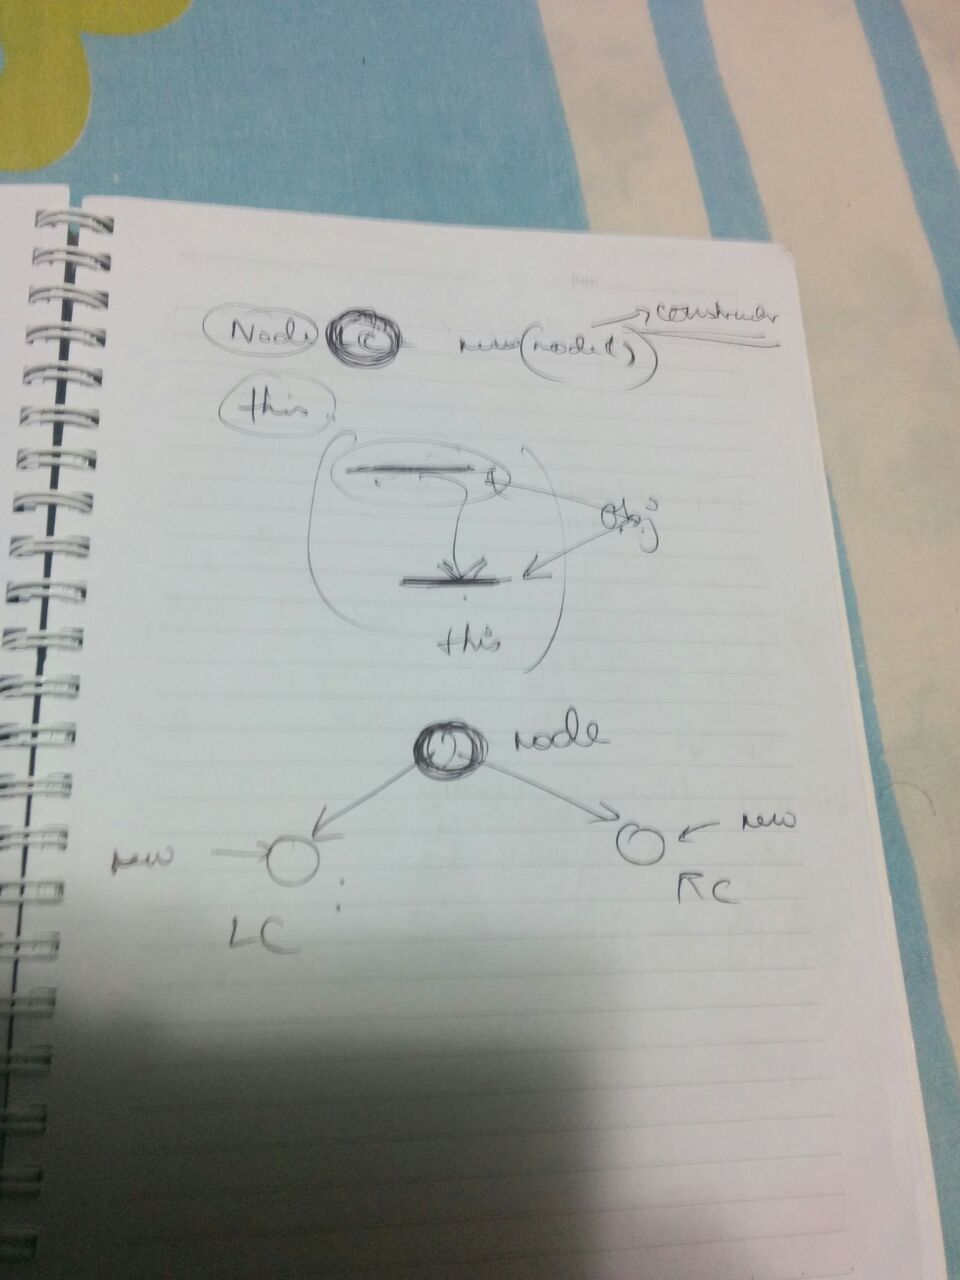 Date:
Node LC new (node()
constructor
this.
Obj
this
node
new
new
RC
LC